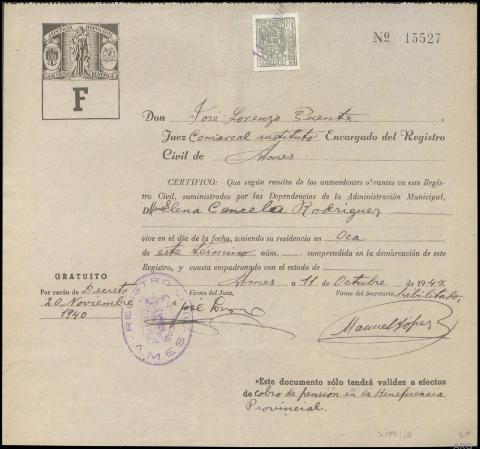 Nº 15527
F
Don José Lorenzo Puente,
Juez Comarcal instituto Encargado del Registro
Civil de Ames
CERTIFICO: Que según resulta de los antecedentes obrantes en este Regis-
tro Civil, suministrados por las Dependencias de la Administración Municipal,
D.ª Elena Cancela Rodriguez
vive en el día de la fecha, teniendo su residencia en Oca
de este término núm. comprendida en la demarcación de este
Registro, y consta empadronado con el estado de
Ames a 11 de Octubre de 1947
GRATUITO
Por razón de Decreto
20 Noviembre
1940
Firma del Juez,
José Lorenzo
Firma del Secretario, habilitado,
Manuel López
REGISTRO
AMES
*Este documento sólo tendrá validez a efectos
de cobro de pensión en la Beneficencia
Provincial.